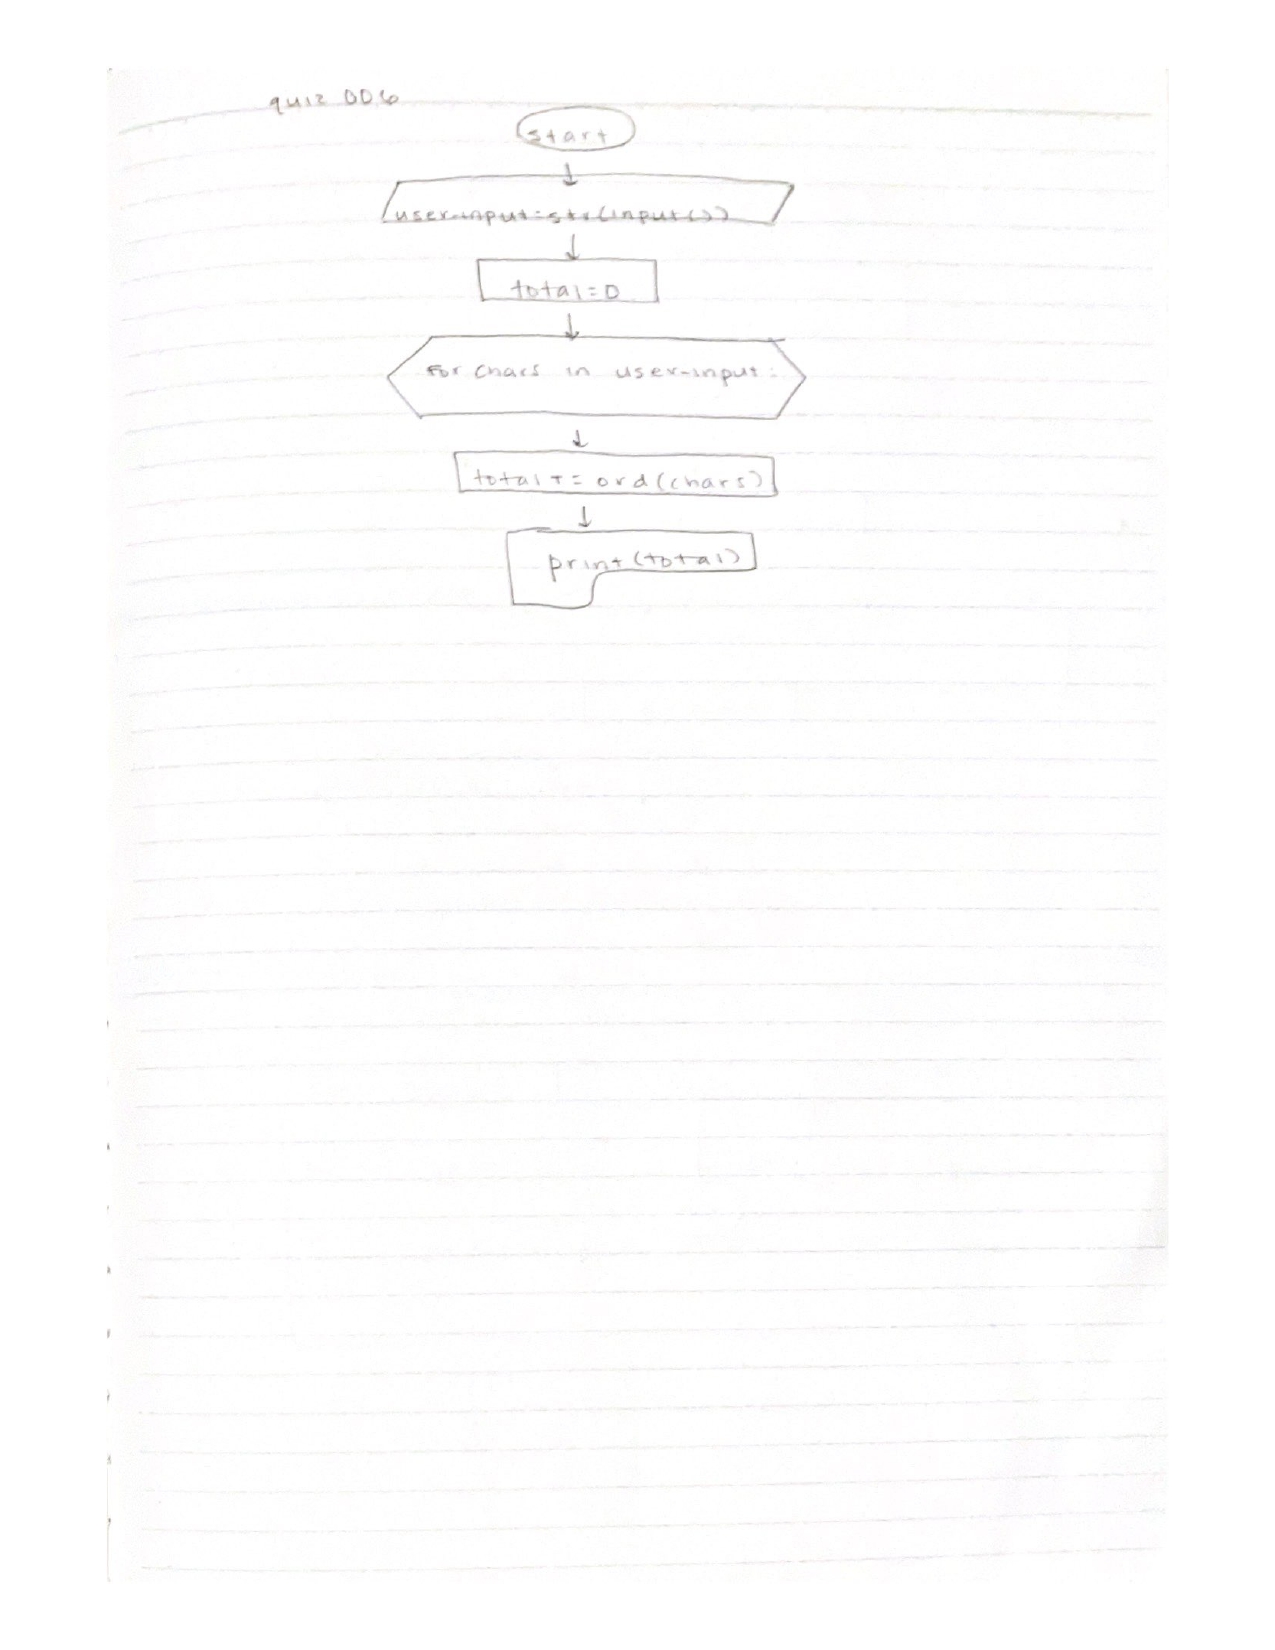 quiz 006
start
user-input=str(input())
total=0
for chars in user-input:
total+=ord(chars)
print(total)